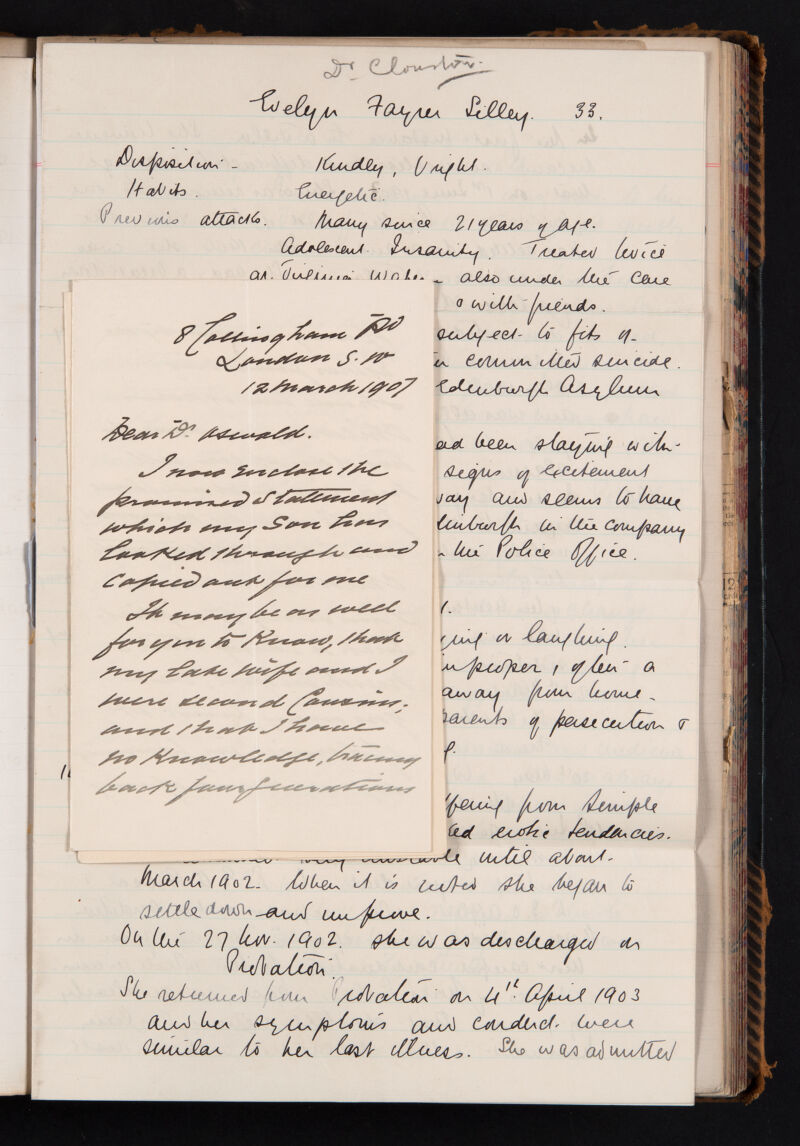 Dr Clouston.
Evelyn Fayrer Lilley. 33.
Disposition - Kindly, bright.
Habits. Energetic.
Previous attacks. Many since 21 years of age.
Adolescent Insanity. Treated twice
at Virginia Water - also under the care
with friends.
subject to fits of
committed suicide.
Edenburgh Asylum
had been staying with
signs of excitement
way and seems to have
Edinburgh in the company
the Police Office.
crying or laughing.
improper, often a
away from home.
parents of persecution &
suffering from Simple
erotic tendencies.
very until about
March 1902. When it is noted she began to
settle down and improve.
On the 27 Nov. 1902. she was descharged on
Probation.
She returned from Probation on 4th April 1903
and her symptoms and conduct were
similar to her last illness. She was admitted
8 Collingham Rd
London S.W
12 March 1907
Dear Dr Oswald.
I now enclose the
promised Statement
which my Son has
looked through and
copied out for me
It may be as well
for you to Know, that
my late Wife and I
were second Cousins;
and that I have
no Knowledge, tracing
back four generations